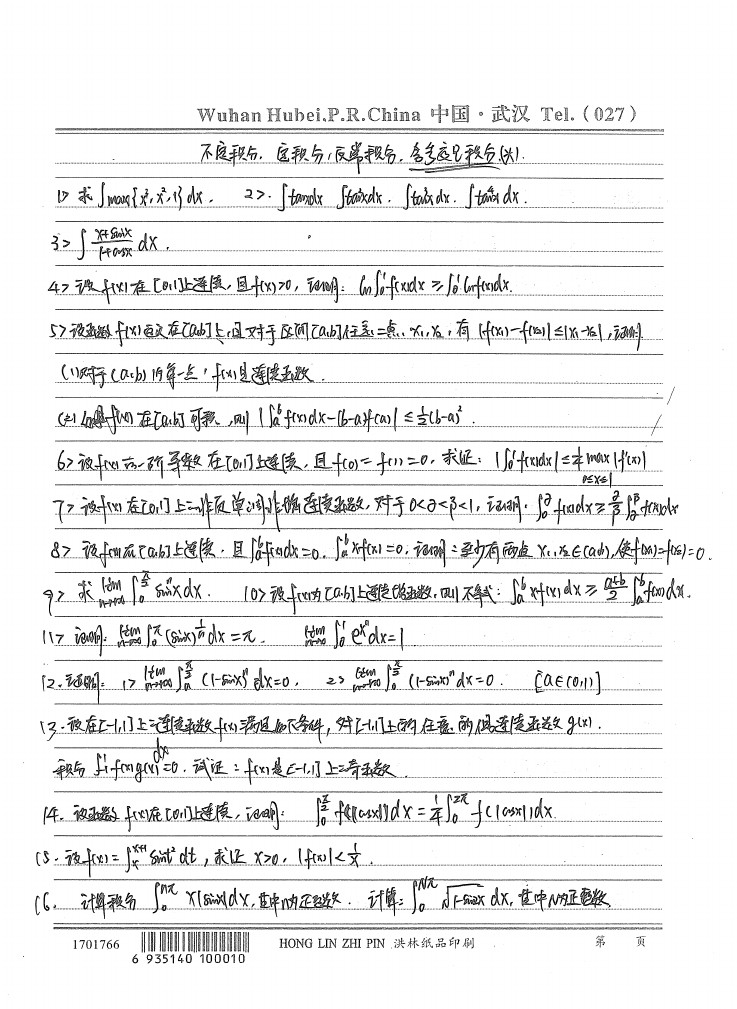 Wuhan Hubei.P.R.China 中国·武汉 Tel.(027)
不定积分, 定积分, 反常积分, 含参变量积分(大).
1> 求 ∫max{x³, x², 1}dx. 2>. ∫tanxdx ∫tan²xdx. ∫tan³xdx. ∫tan⁴x dx.
3> ∫ (x+sinx)/(1+cosx) dx.
4> 设f(x)在[0,1]上连续, 且f(x)>0, 证明: ln∫₀¹f(x)dx ≥ ∫₀¹lnf(x)dx.
5> 设函数f(x)定义在[a,b]上, 且对于区间[a,b]任意二点, x₁, x₂, 有 |f(x₁)-f(x₂)| ≤ |x₁-x₂|, 证明
(1)对于(a,b)的每一点, f(x)是连续函数.
(2) 如果f(x)在[a,b]可积, 则 |∫ₐᵇf(x)dx-(b-a)f(a)| ≤ ½(b-a)².
6> 设f(x)的一阶导数在[0,1]上连续, 且f(0)=f(1)=0, 求证: |∫₀¹f(x)dx| ≤ ¼ max |f'(x)|
0≤x≤1
7> 设f(x)在[0,1]上二非负单调非增连续函数, 对于0<∂<β<1, 证明: ∫₀^∂ f(x)dx ≥ ∂/β ∫_∂^β f(x)dx
8> 设f(x)在[a,b]上连续. 且∫ₐᵇf(x)dx=0, ∫ₐᵇxf(x)=0, 证明: 至少有两点 x₁, x₂∈(a,b), 使f(x₁)=f(x₂)=0.
9> 求 lim n→∞ ∫₀^(π/2) sinⁿxdx. 10> 设f(x)为[a,b]上连续增函数, 则不等式: ∫ₐᵇxf(x)dx ≥ (a+b)/2 ∫ₐᵇf(x)dx.
11> 证明: lim n→∞ ∫₀^π (sinx)^(1/n) dx = π. lim n→∞ ∫₀¹ e^(xⁿ)dx=1
12. 证明: 1> lim n→∞ ∫ₐ^(π/2) (1-sinx)ⁿ dx=0. 2> lim n→∞ ∫₀^(π/2) (1-sinx)ⁿdx=0. [a∈(0,1)]
13. 设在[-1,1]上二连续函数f(x)满足如下条件, 对[-1,1]上的任意的偶连续函数g(x).
积分 ∫₋₁¹f(x)g(x)dx=0. 试证: f(x)是[-1,1]上二奇函数
14. 设函数f(x)在[0,1]上连续, 证明: ∫₀^(π/2) f(|cosx|)dx = ¼∫₀^(2π) f(|cosx|)dx
15. 设f(x)=∫ₓ^(x+1) sint²dt, 求证 x>0, |f(x)|<1/x.
16. 计算积分 ∫₀^(nπ) x|sinx|dx, 其中n为正整数. 计算: ∫₀^(Nπ) √(1-sin2x) dx, 其中N为正整数
1701766 HONG LIN ZHI PIN 洪林纸品印刷 第 页
6 935140 100010